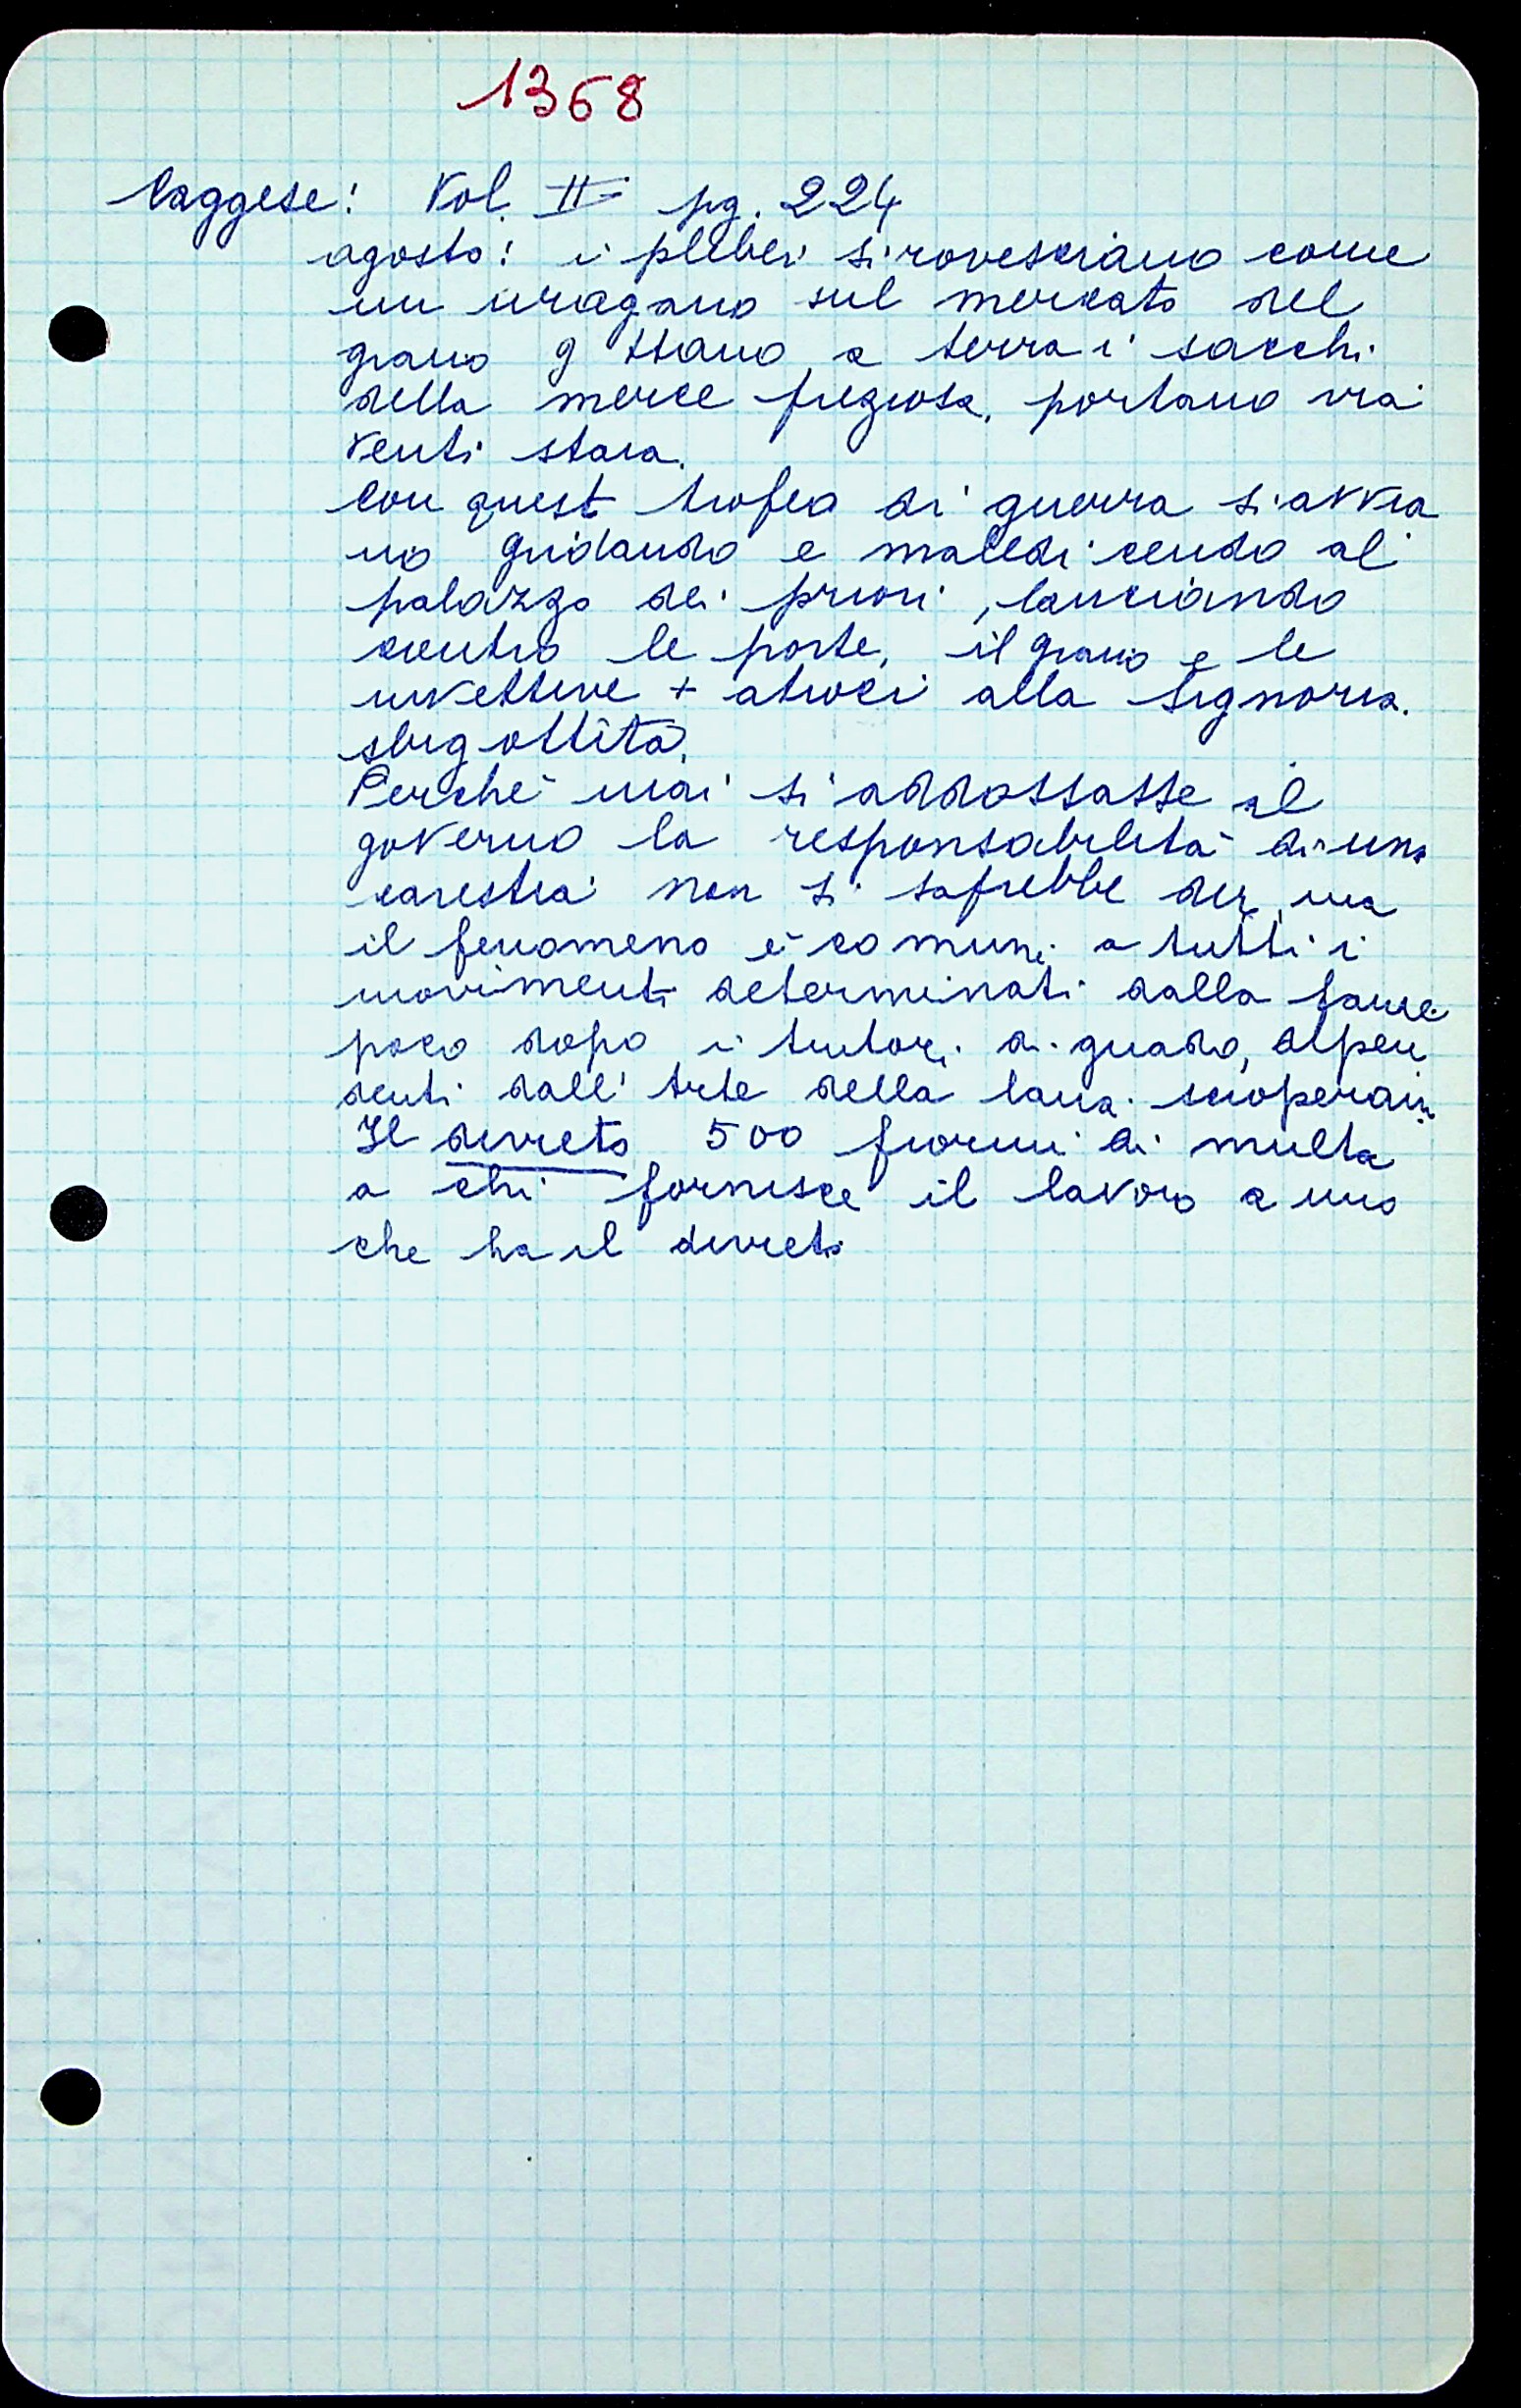 1368
Caggese: Vol. II pg. 224
agosto: i plebei si rovesciano come
un uragano sul mercato del
grano gettano a terra i sacchi
della merce preziosa, portano via
venti staia.
Con quest trofeo di guerra s'avvia
no gridando e maledicendo al
palazzo dei priori, lanciando
contro le porte, il grano e le
invettive + atroci alla Signoria.
sbigottita.
Perché mai si addossasse al
governo la responsabilità di una
carestia non si saprebbe dir, ma
il fenomeno è comune a tutti i
movimenti determinati dalla fame
poco dopo i tintori di guado, dipen
denti dall' Arte della lana. scioperain
Il divieto 500 fiorini di multa
a chi fornisce il lavoro a uno
che ha il divieto